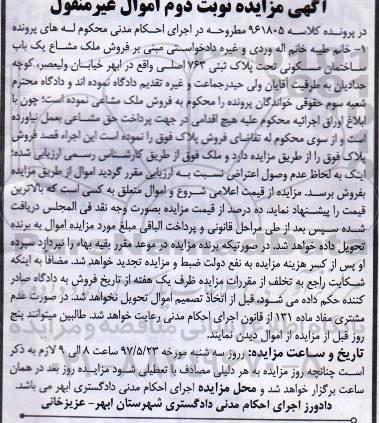 آگهی مزایده نوبت دوم اموال غیرمنقول
در پرونده کلاسه ۹۶۱۸۰۵ مطروحه در اجرای احکام مدنی محکوم له های پرونده
۱- خانم طیبه خانم اله وردی و غیره دادخواستی مبنی بر فروش ملک مشاع یک باب
ساختمان مسکونی تحت پلاک ثبتی ۷۶۳ اصلی واقع در ابهر خیابان ولیعصر، کوچه
جدادیان به طرفیت آقایان ولی حیدرجماعت و غیره تقدیم دادگاه نموده اند و دادگاه محترم
شعبه سوم حقوقی خواندگان پرونده را محکوم به فروش ملک مشاعی نموده است؛ چون با
ابلاغ اوراق اجرائیه محکوم علیه هیچ اقدامی در جهت پرداخت حق مشاعی بعمل نیاورده
است و از سوی محکوم له تقاضای فروش پلاک فوق را نموده است این اجراء قصد فروش
پلاک فوق را از طریق مزایده دارد و ملک فوق از طریق کارشناس رسمی ارزیابی شده؛
اینک به لحاظ عدم وصول اعتراض نسبت به ارزیابی مقرر گردید اموال از طریق مزایده
بفروش برسد. مزایده از قیمت اعلامی شروع و اموال متعلق به کسی است که بالاترین
قیمت را پیشنهاد نماید. ده درصد از قیمت مزایده بصورت وجه نقد فی المجلس دریافت
شده سپس بعد از طی مراحل قانونی و پرداخت الباقی مبلغ مورد مزایده اموال به برنده
تحویل داده خواهد شد. در صورتیکه برنده مزایده در موعد مقرر بقیه بهاء را نپردازد سپرده
او پس از کسر هزینه مزایده به نفع دولت ضبط و مزایده تجدید خواهد شد. مضافا به اینکه
شکایت راجع به تخلف از مقررات مزایده ظرف یک هفته از تاریخ فروش به دادگاه صادر
کننده حکم داده می شود، قبل از اتخاذ تصمیم اموال تحویل نخواهد شد. در صورت عدم
مشتری مفاد ماده ۱۳۱ از قانون اجرای احکام مدنی رعایت خواهد شد. طالبین میتوانند پنج
روز قبل از مزایده از اموال دیدن نمایند.
تاریخ و ساعت مزایده: روز سه شنبه مورخه ۹۷/۵/۲۳ ساعت ۸ الی ۹ لازم به ذکر
است چنانچه روز مزایده به هر دلیلی مصادف با تعطیلی شود مزایده روز بعد در همان
ساعت برگزار خواهد شد و محل مزایده اجرای احکام مدنی دادگستری ابهر می باشد.
دادورز اجرای احکام مدنی دادگستری شهرستان ابهر- عزیزخانی